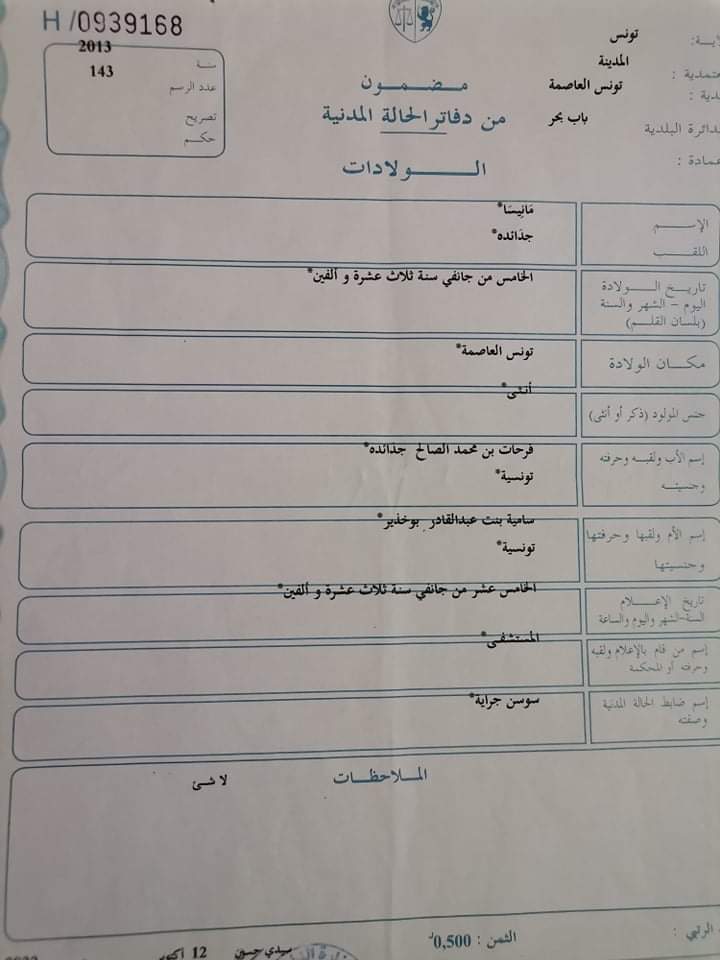 H /0939168
2013
سنة
143
عدد الرسم
تصريح
حكم
تونس
المدينة
تونس العاصمة
باب بحر
الدائرة البلدية
مضمون
من دفاتر الحالة المدنية
الولادات
الإسم
مَانِيسَا*
اللقب
جذائده*
تاريخ الولادة
اليوم - الشهر والسنة
(بلسان القلم)
الخامس من جانفي سنة ثلاث عشرة و ألفين*
مكان الولادة
تونس العاصمة*
جنس المولود (ذكر أو أنثى)
أنثى*
إسم الأب ولقبه وحرفته
وجنسيته
فرحات بن محمد الصالح جذائده*
تونسية*
إسم الأم ولقبها وحرفتها
وجنسيتها
سامية بنت عبدالقادر بوخذير*
تونسية*
تاريخ الإعلام
السنة-الشهر واليوم والساعة
الخامس عشر من جانفي سنة ثلاث عشرة و ألفين*
إسم من قام بالإعلام ولقبه
وحرفته أو المحكمة
المستشفى*
إسم ضابط الحالة المدنية
وصفته
سوسن جراية*
الملاحظات
لا شئ
الرتبي :
الثمن : 0,500
سيدي حسين
12 أكتوبر